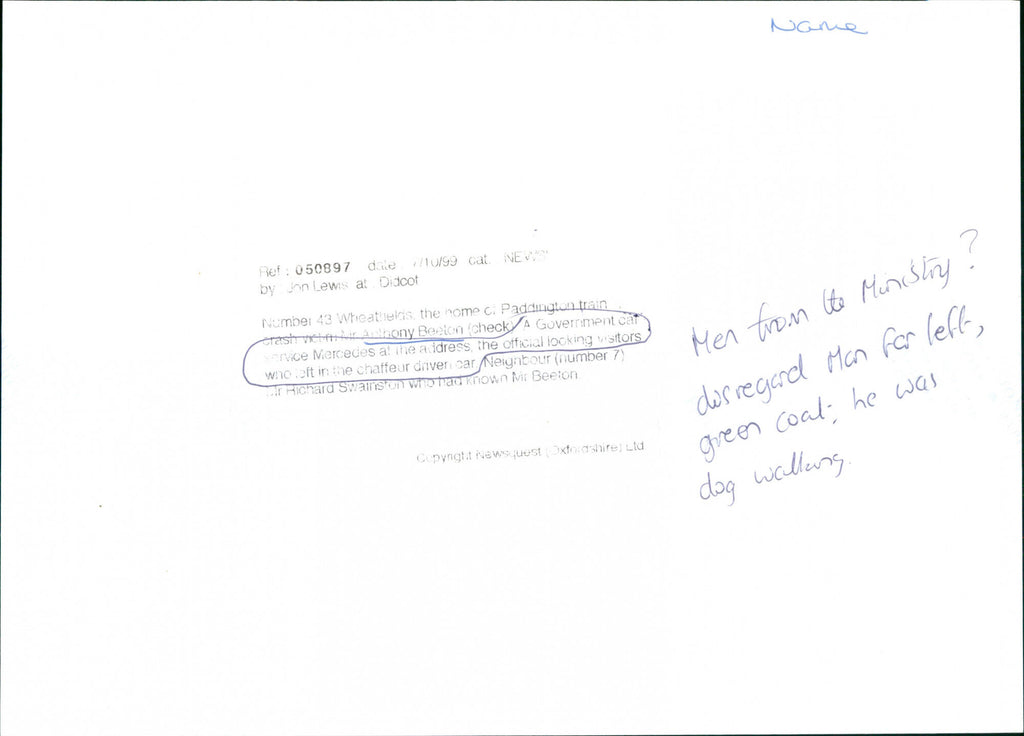 Name
Ref : 050897 date /10/99 cat. NEWS
by : Jon Lewis at : Didcot
Number 43 Wheatfields, the home of Paddington train
crash victim Mr Anthony Beeton (check) A Government car
service Mercedes at the address, the official looking visitors
who left in the chaffeur driven car. Neighbour (number 7)
Mr Richard Swainston who had known Mr Beeton
Copyright Newsquest (Oxfordshire) Ltd
Men from the Ministry?
disregard Man far left,
green coat; he was
dog walking.